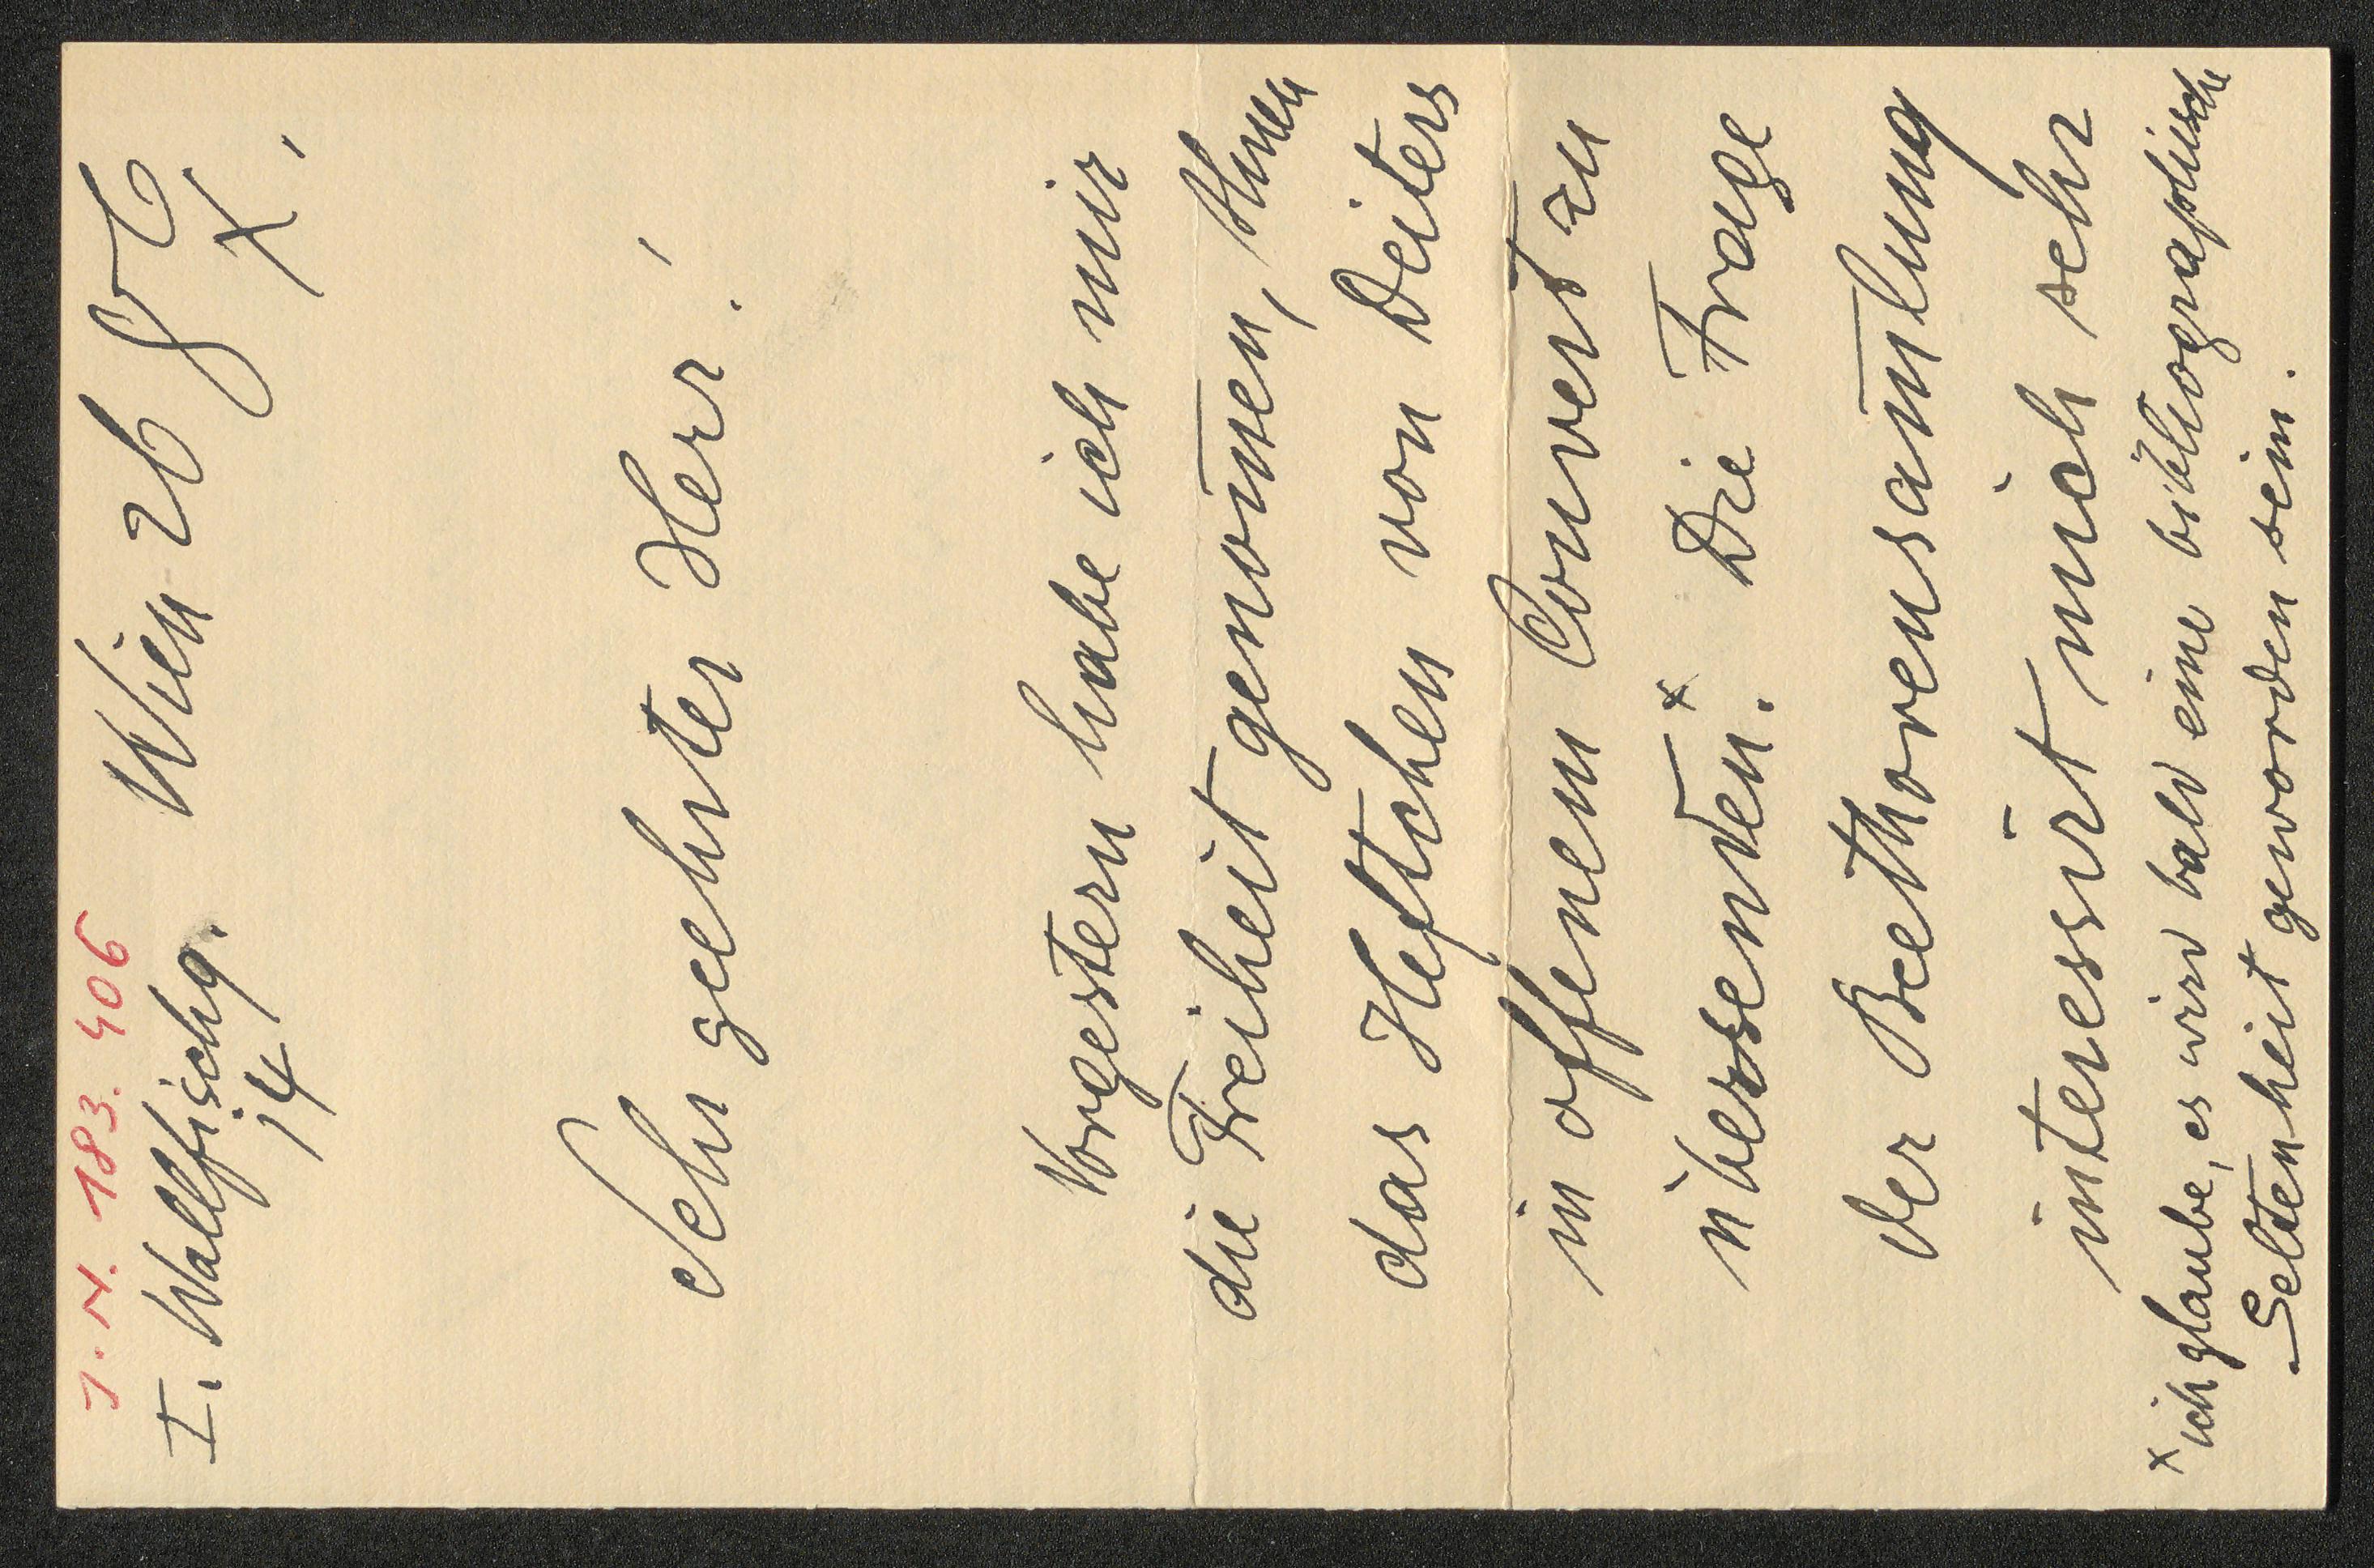 J. N. 183.406
I. Wallfischg. Wien 26
14
X.
Sehr geehrter Herr!
Vorgestern habe ich mir
die Freiheit genom̅en, Ihnen
das Heftchen von Deiters
in offenem Couvert zu
übersenden.ˣ Die Frage
der Beethovensam̅lung
interessirt mich sehr
ˣ ich glaube, es wird bald eine bibliographische
Seltenheit geworden sein.